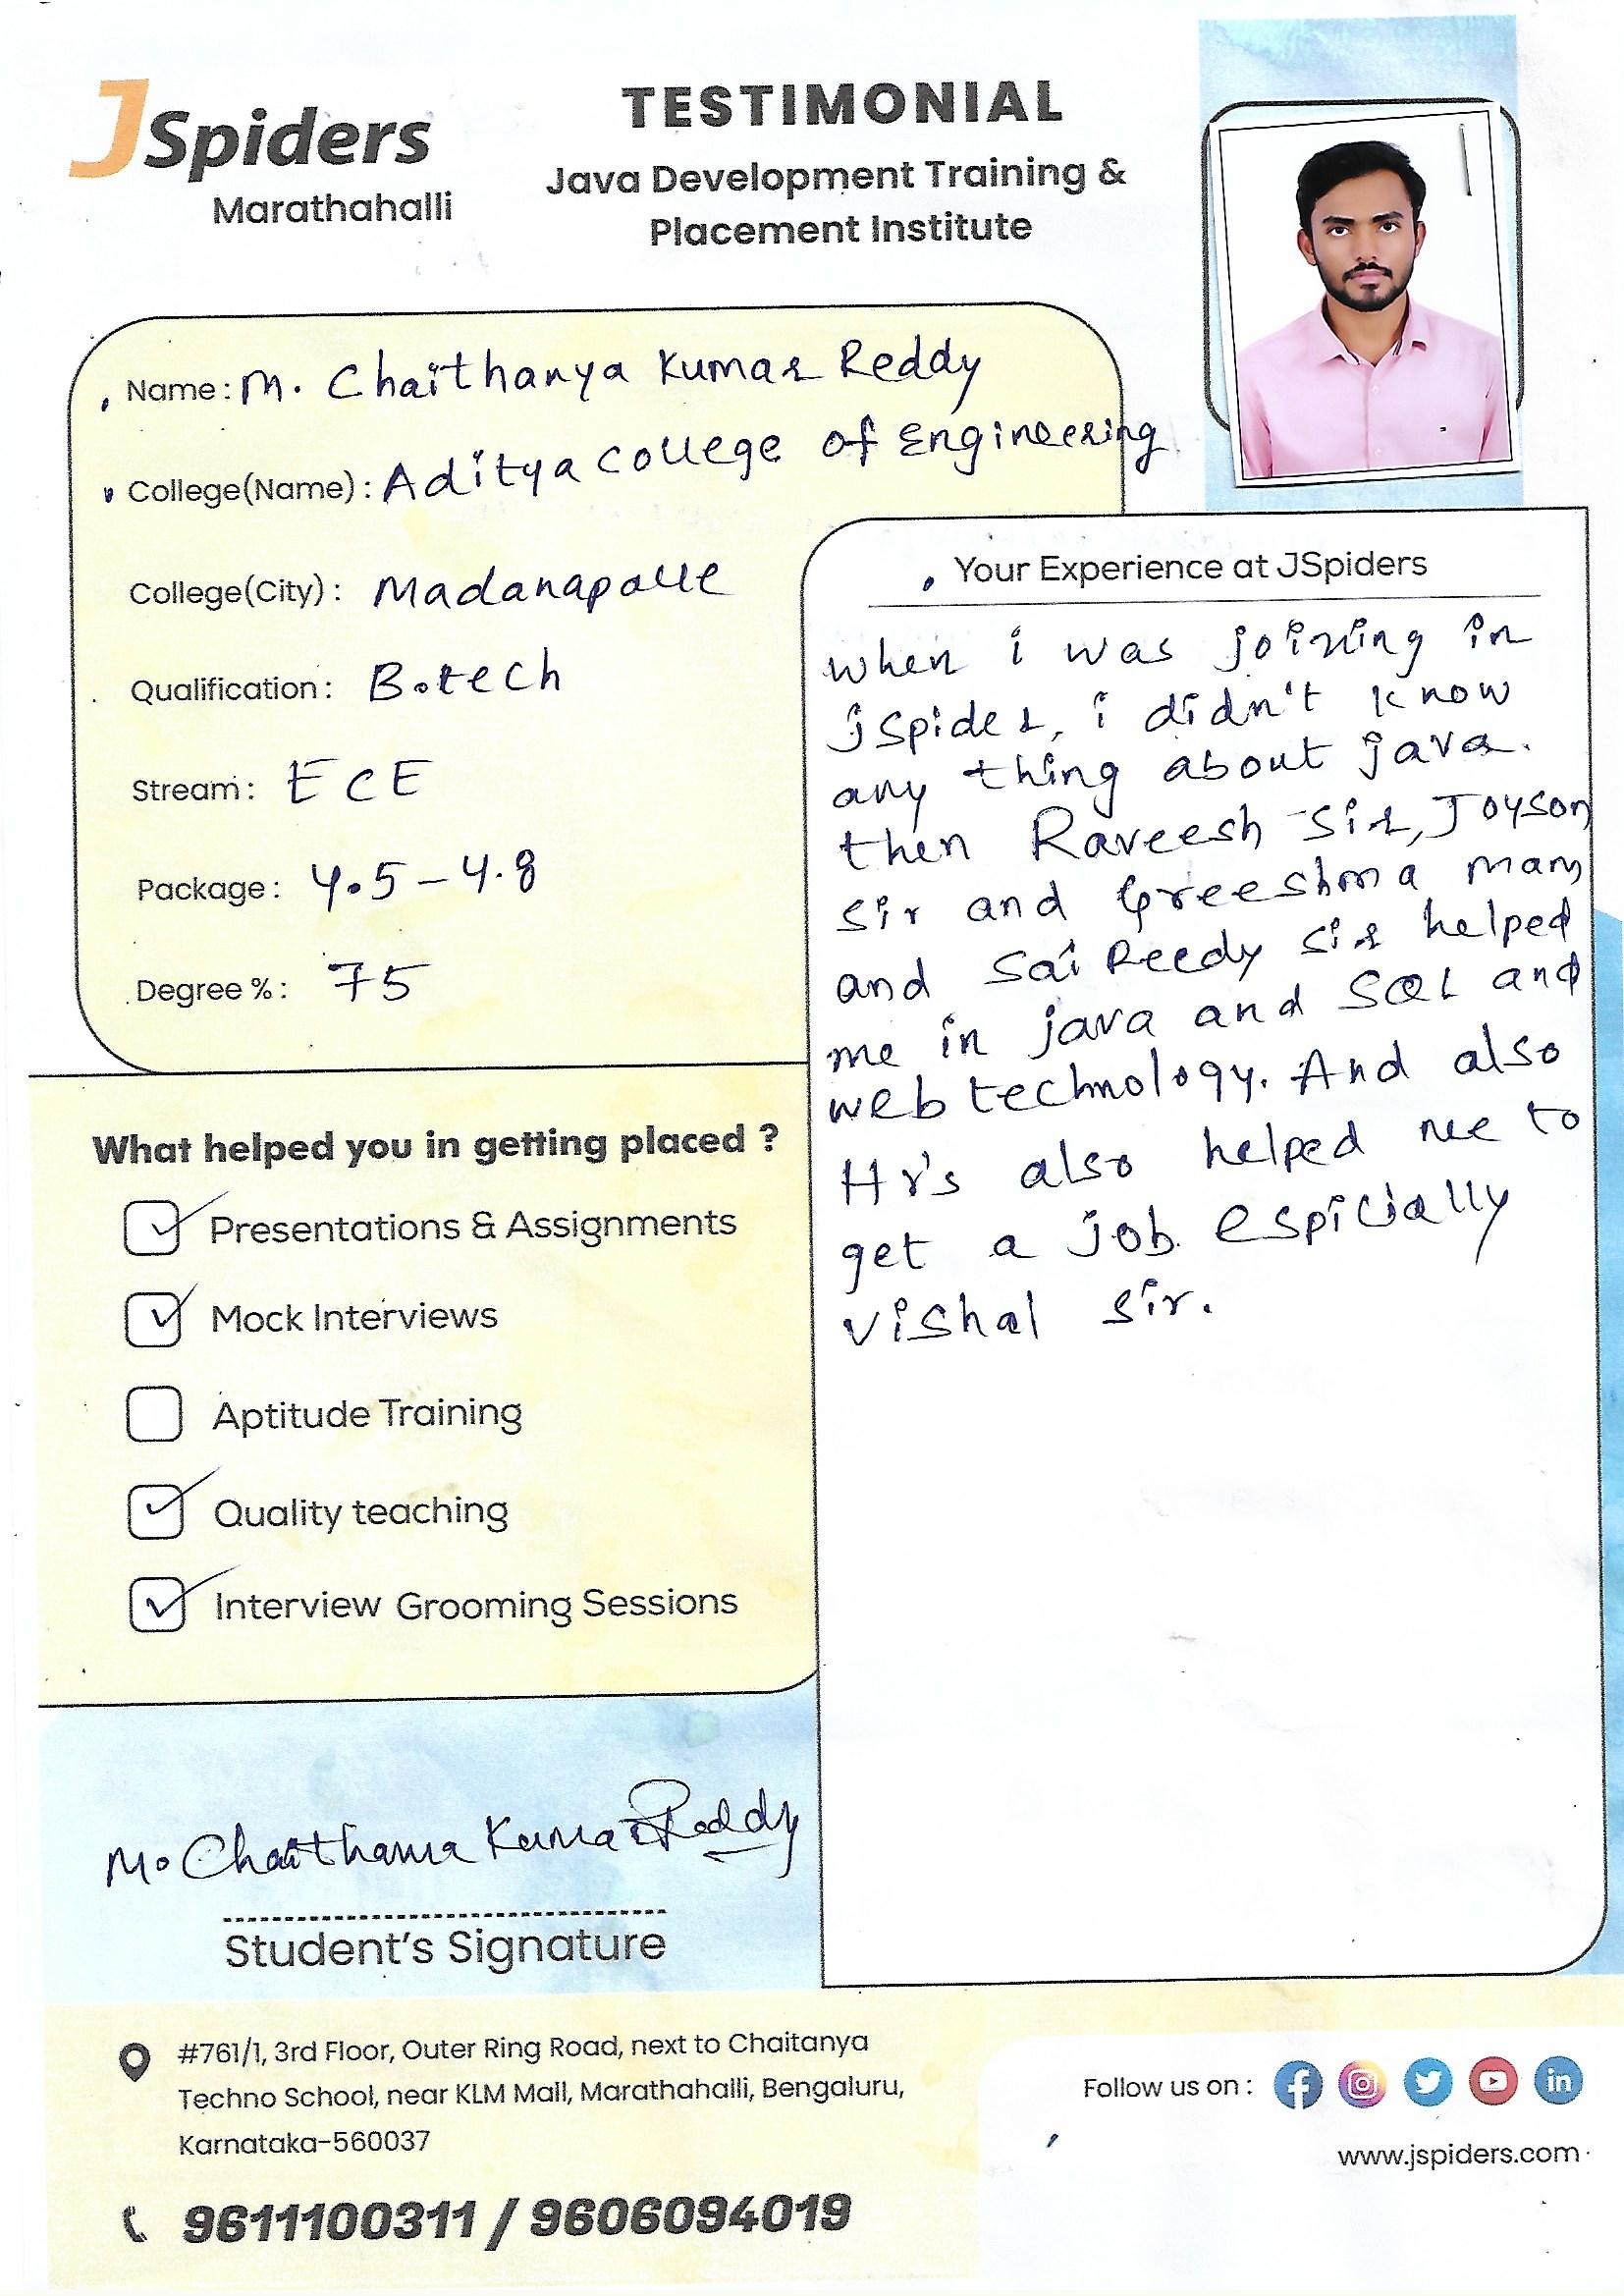 JSpiders
Marathahalli
TESTIMONIAL
Java Development Training &
Placement Institute
Name: M. Chaithanya Kumar Reddy
College(Name): Aditya college of Engineering
College(City): Madanapalle
Qualification: B.tech
Stream: ECE
Package: 4.5-4.8
Degree %: 75
What helped you in getting placed ?
Presentations & Assignments
Mock Interviews
Aptitude Training
Quality teaching
Interview Grooming Sessions
Your Experience at JSpiders
when i was joining in
jspider, i didn't know
any thing about java.
then Raveesh sir, Joyson
sir and Greeshma mam
and Sai Reedy sir helped
me in java and SQL and
web technology. And also
Hr's also helped me to
get a job espicially
vishal sir.
M. Chaithanya Kumar Reddy
Student's Signature
#761/1, 3rd Floor, Outer Ring Road, next to Chaitanya
Techno School, near KLM Mall, Marathahalli, Bengaluru,
Karnataka-560037
9611100311 / 9606094019
Follow us on :
www.jspiders.com